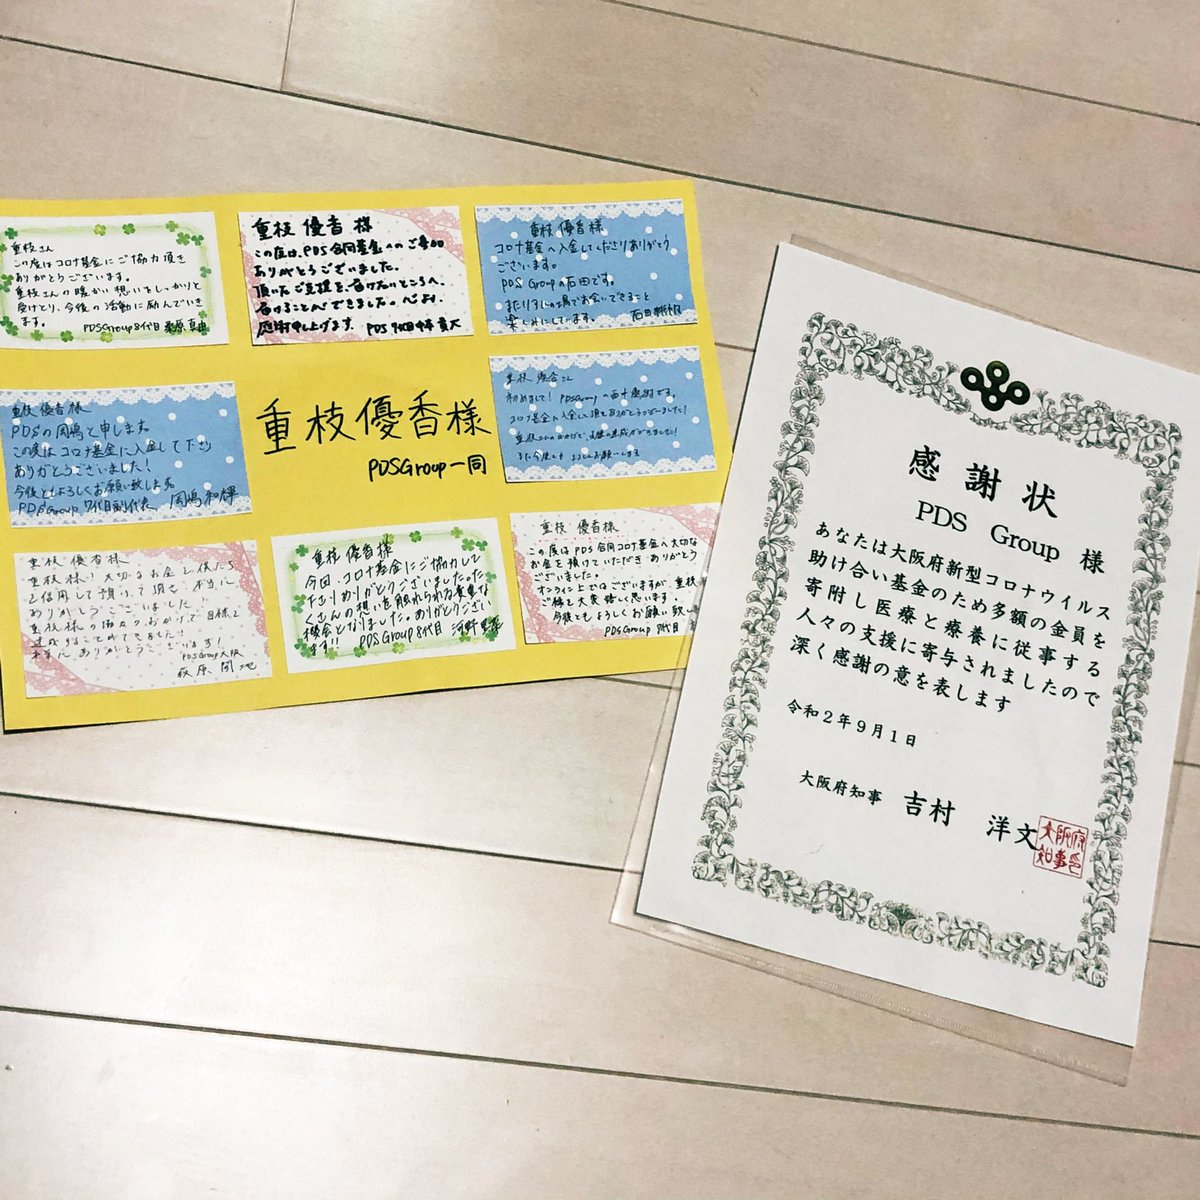 重枝さん
この度はコロナ基金にご協力頂き
ありがとうございます。
重枝さんの暖かい想いをしっかりと
受けとり、今後の活動に励んでいき
ます。
PDSGroup8代目
重枝 優香 様
この度は、PDS合同基金へのご参加
ありがとうございました。
頂いたご支援を、届けたいところへ、
届けることができました。心より、
感謝申し上げます。
重枝 優香様
コロナ基金へ入金してくださりありがとう
ございます。
PDS Groupの石田です。
またリアルの場でお会いできること
楽しみにしています。
重枝 優香様
PDSの岡嶋と申します。
この度はコロナ基金に入金して下さり
ありがとうございました!
今後ともよろしくお願い致します。
PDSGroup 7代目副代表 岡嶋 和輝
重枝優香様
PDSGroup一同
重枝 優香さん
初めまして! PDSGroupの
コロナ基金に入金して頂きありがとうございました!
重枝 優香様
重枝様!大切なお金を僕たち
を信用して預けて頂き、本当に
ありがとうございました!
重枝様の協力のおかげで目標を
達成することができました!!
本当にありがとうございます!
PDSGroup大阪
重枝 優香様
今回、コロナ基金にご協力して
下さりありがとうございました。た
くさんの想いを触れられる貴重な
機会となりました。ありがとうござい
ます!!
PDSGroup8代目 河野
重枝 優香様
この度はPDS合同コロナ基金へ大切な
お金を預けていただき ありがとう
ございました。
オンライン上ではございますが、重枝
ご縁を大変嬉しく思います。
今後ともよろしくお願い致し
PDSGroup 8代目
感謝状
PDS Group 様
あなたは大阪府新型コロナウイルス
助け合い基金のため多額の金員を
寄附し医療と療養に従事する
人々の支援に寄与されましたので
深く感謝の意を表します
令和2年9月1日
大阪府知事 吉村 洋文
大阪府
知事印